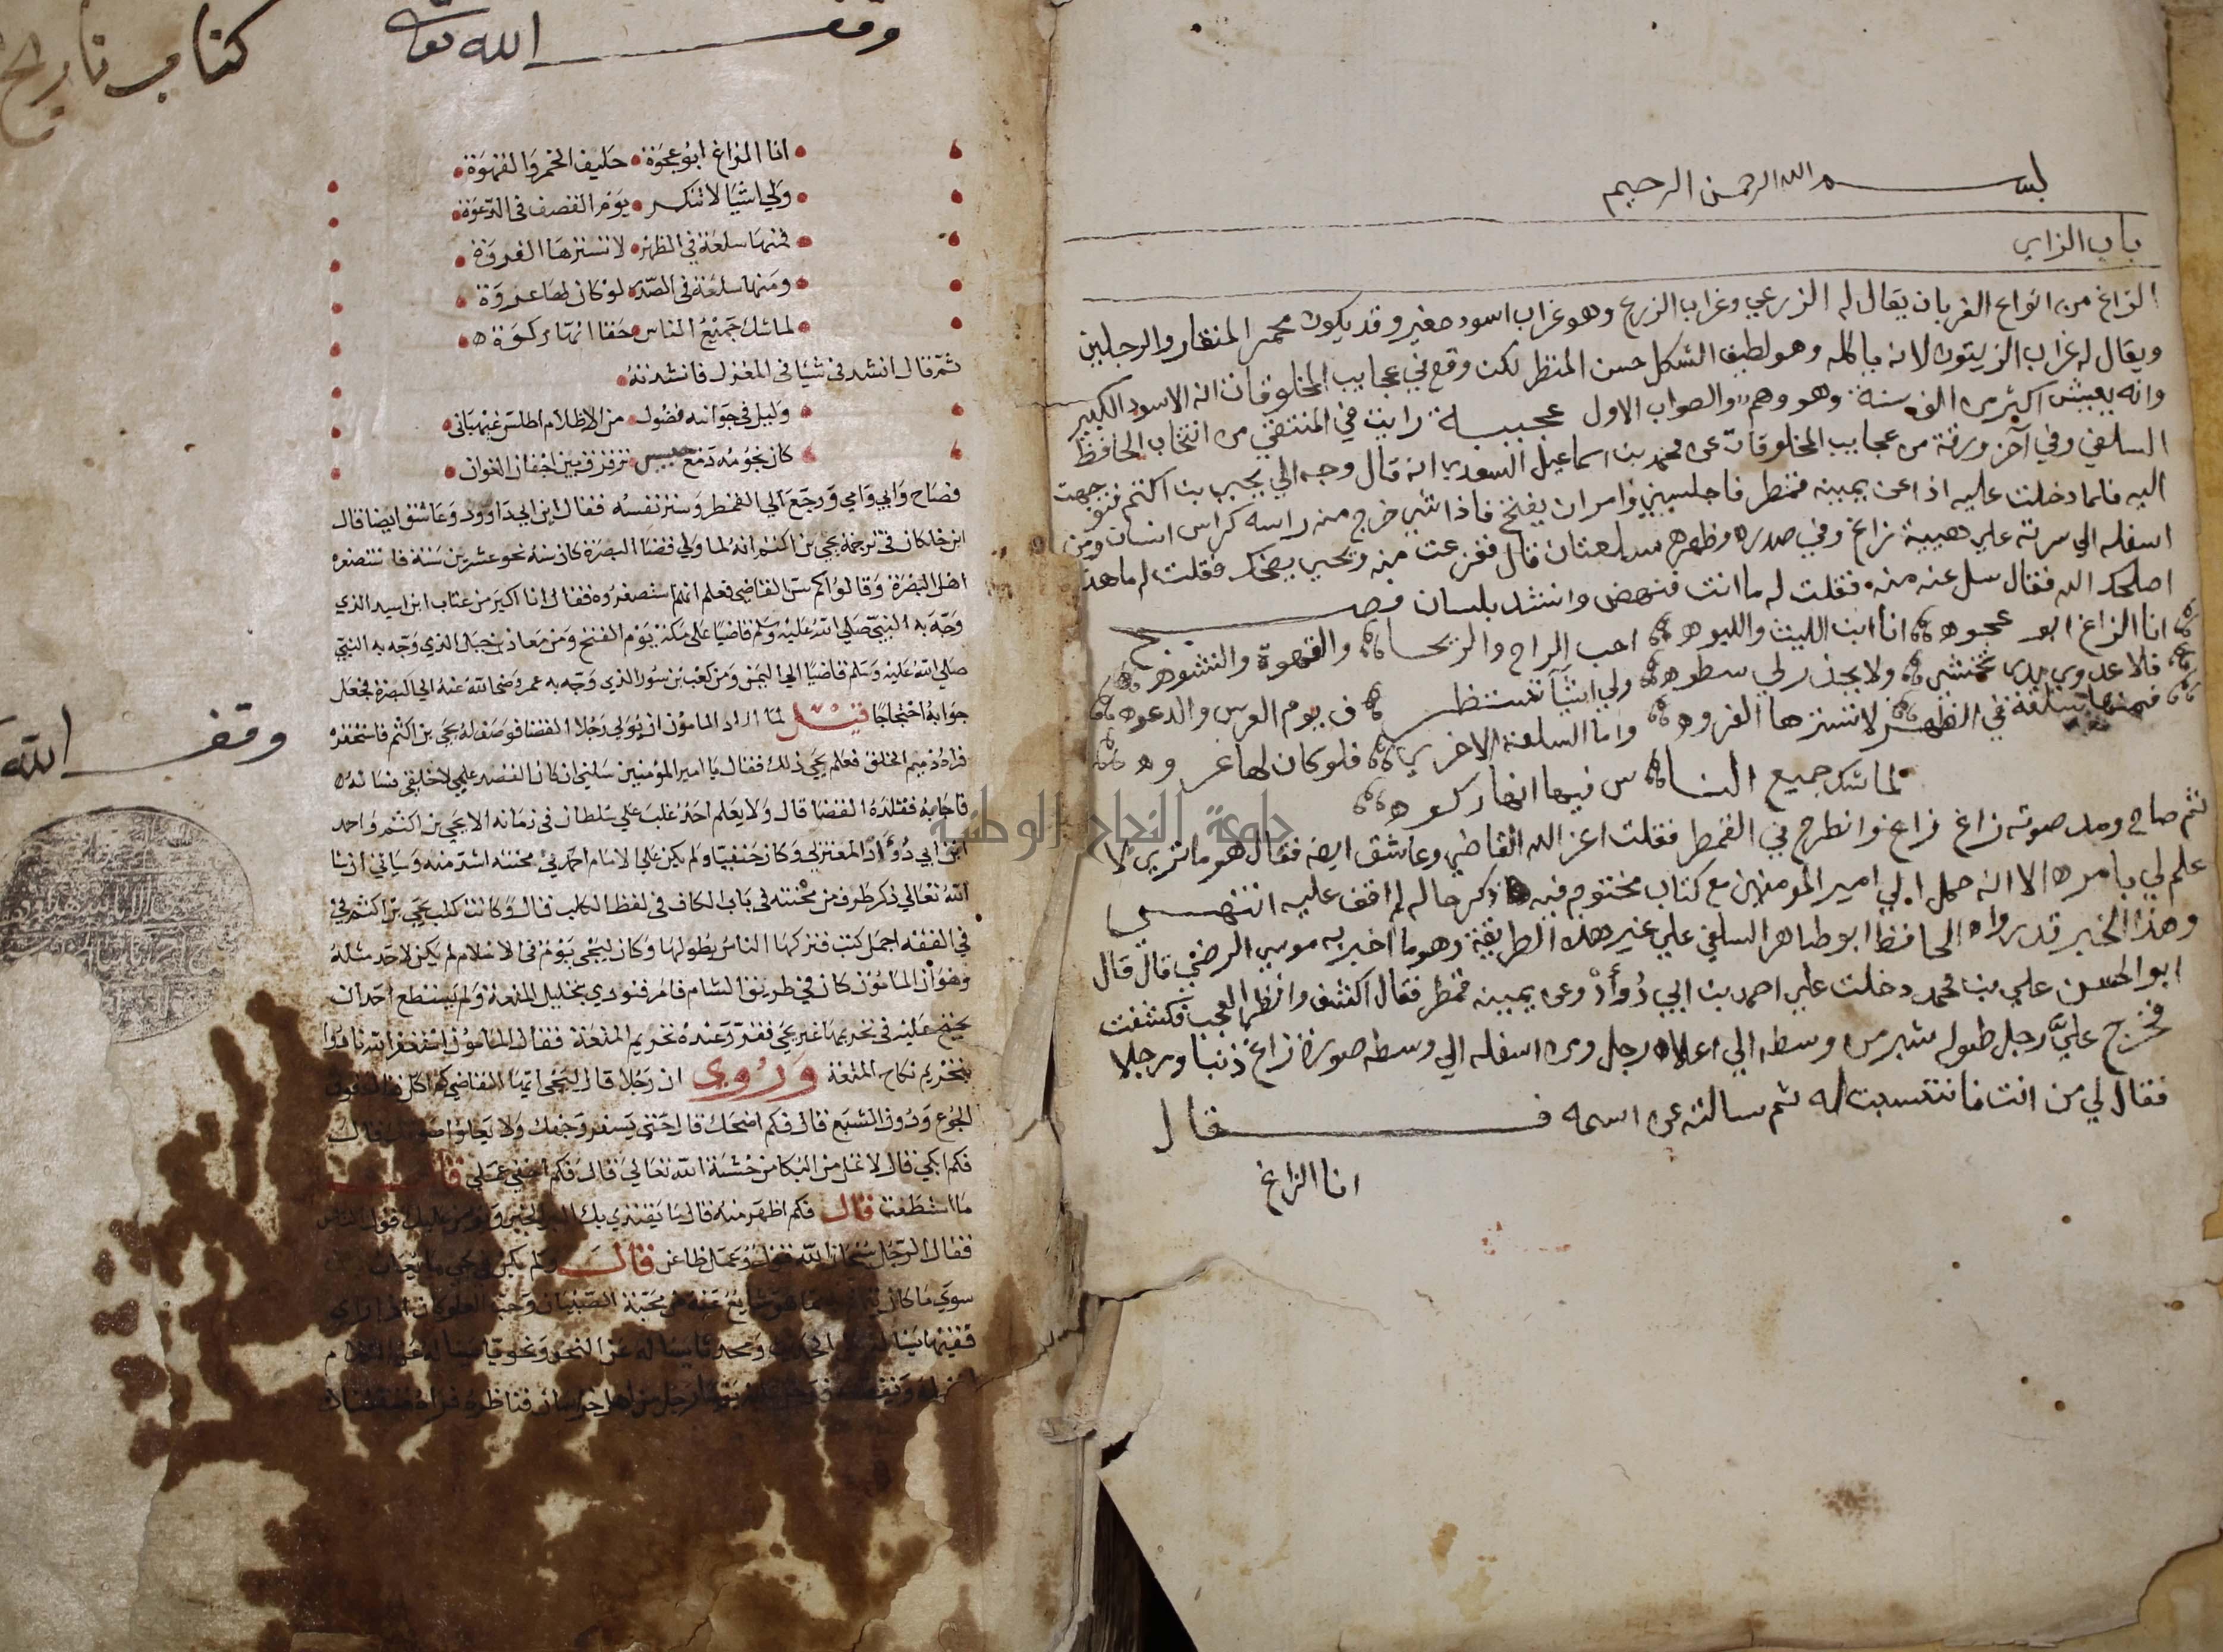 بسم الله الرحمن الرحيم
باب الزاي
الزاغ من انواع الغربان يقال له الزرعي وغراب الزرع وهو غراب اسود صغير وقد يكون محمر المنقار والرجلين
ويقال له غراب الزيتون لانه ياكله وهو لطيف الشكل حسن المنظر لكن وقع في عجايب المخلوقات انه الاسود الكبير
وانه يعيش اكثر من الف سنة وهو وهم والصواب الاول عجيبة رايت في المنتقي من انتخاب الحافظ
السلفي وفي آخر ورقة من عجايب المخلوقات عن محمد بن اسماعيل السعدي انه قال وجه الي يحيي بن اكثم فتوجهت
اليه فلما دخلت عليه اذا عن يمينه قمطر فاجلسني وامر ان يفتح فاذا شي خرج منه راسه كراس انسان ومن
اسفله الي سرته علي هيية زاغ وفي صدره وظهره سلعتان قال ففزعت منه ويحيي يضحك فقلت له ما هذا
اصلحك الله فقال سل عنه منه فقلت له ما انت فنهض وانشد بلسان فصيح
انا الزاغ ابو عجوه انا ابن الليث واللبوه احب الراح والريحان والقهوة والنشوه
فلا عدوي يدي تخشي ولا يحذر لي سطوه ولي اشيآ تستظرف يوم العرس والدعوه
فمنها سلعة في الظهر لا تسترها الفروه واما السلعة الاخري فلو كان لها عروه
لما شك جميع الناس فيها انها ركوه
ثم صاح ومد صوته زاغ زاغ وانطرح في القمطر فقلت اعز الله القاضي وعاشق ايضا فقال هو ما تري لا
علم لي بامره الا انه حمل الي امير المومنين مع كتاب مختوم فيه ذكر حاله لم اقف عليه انتهي
وهذا الخبر قد رواه الحافظ ابو طاهر السلفي علي غير هذه الطريقة وهو ما اخبر به موسي الرضي قال قال
ابو الحسن علي بن محمد دخلت علي احمد بن ابي دُوأَدْ وعن يمينه قمطر فقال اكشف وانظر العجب فكشفت
فخرج عليَّ رجل طوله شبر من وسطه الي اعلاه رجل ومن اسفله الي وسطه صورة زاغ ذنبا ورجلا
فقال لي من انت فانتسبت له ثم سالته عن اسمه فقال
انا الزاغ
وقف الله تعالى
كتاب تاريخ
انا الزاغ ابو عجوة حليف الخمر والقهوة
ولي اشيا لا تنكر يوم القصف في الدعوة
فمنها سلعة في الظهر لا تسترها الفروة
ومنها سلعة في الصدر لو كان لها عروة
لما شك جميع الناس حقا انها ركوة
ثم قال انشدني شيا في الغزل فانشدته
وليل في جوانبه فضول من الاظلام اطلس غيهباني
كان نجومه دمع حبيس ترقرق بين اجفان الغواني
فصاح وابي وامي ورجع الي القمطر وستر نفسه فقال ابن ابي داوود وعاشق ايضا قال
ابن خلكان في ترجمة يحيي بن اكثم انه لما ولي قضا البصرة كان سنه نحو عشرين سنة فاستصغره
اهل البصرة وقالوا كم سن القاضي فعلم انهم استصغروه فقال انا اكبر من عتاب ابن اسيد الذي
وجه به النبي صلي الله عليه وسلم قاضيا علي مكة يوم الفتح ومن معاذ بن جبل الذي وجه به النبي
صلي الله عليه وسلم قاضيا الي اليمن ومن كعب بن سور الذي وجه به عمر رضي الله عنه الي البصرة فجعل
جوابه احتجاجا قيل لما اراد المامون ان يولي رجلا القضا فوصف له يحيي بن اكثم فاستحضره
فراه ذميم الخلق فعلم يحيي ذلك فقال يا امير المؤمنين سلني ان كان القصد علمي لا خلقي فساله
فاجابه فقلده القضا قال ولا يعلم احد غلب علي سلطان في زمانه الا يحيي بن اكثم واحمد
ابن ابي دُوأَد المعتزلي وكان حنفيا ولم يكن علي الامام احمد في محنته اشد منه وسياتي ان شا
الله تعالي ذكر طرف من محنته في باب الكاف في لفظ الكلب قال وكانت كتب يحيي بن اكثم في
في الفقه اجمل كتب فتركها الناس بطولها وكان ليحيي يوم في الاسلام لم يكن لاحد مثله
وهو ان المامون كان في طريق الشام فامر فنودي بتحليل المتعة ولم يستطع احد ان
يحتج عليه في تحريمها غير يحيي فقرر عنده تحريم المتعة فقال المامون استغفر الله نادوا
بتحريم نكاح المتعة وروي ان رجلا قال ليحيي ايها القاضي كم اكل قال فوق
الجوع ودون الشبع قال فكم اضحك قال حتي يسفر وجهك ولا يعلو صوتك قال
فكم ابكي قال لا تمل من البكا من خشية الله تعالي قال فكم اخفي عملي قال
ما استطعت قال فكم اظهر منه قال ما يقتدي بك البر الخير ويؤمن عليك قول الناس
فقال الرجل سبحان الله قول وعمل ظاعن قال ولم يكن في يحيي ما يعاب
سوي ما كان يتهم به مما هو شايع عنه من محبة الصبيان وحب العلو وكان اذا راي
فقيها يساله عن الحديث ومحدثا يساله عن النحو ونحويا يساله عن الكلام
رجل من اهل خراسان فناظره فراه
وقف الله
جامعة النجاح الوطنية